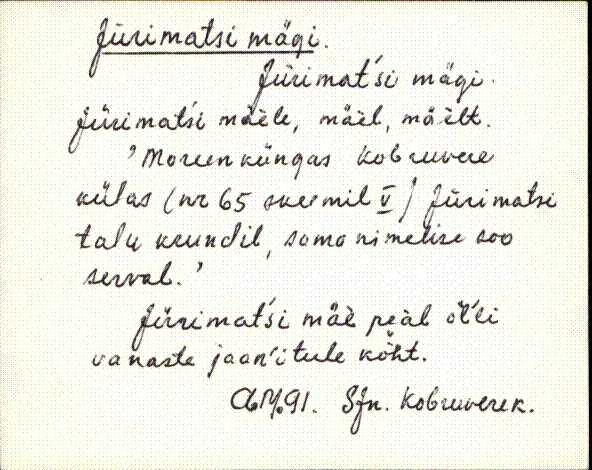 Jürimatsi mägi.
Jürimat́si mägi.
Jürimat́si mäele, mäel, mäelt.
'Moreenküngas Kobruvere
külas (nr 65 skeemil V) Jürimatsi
talu krundil, samanimelise soo
serval.'
Jürimat́si mäe peal
vanaste jaańitule köht.
Kobruverek.